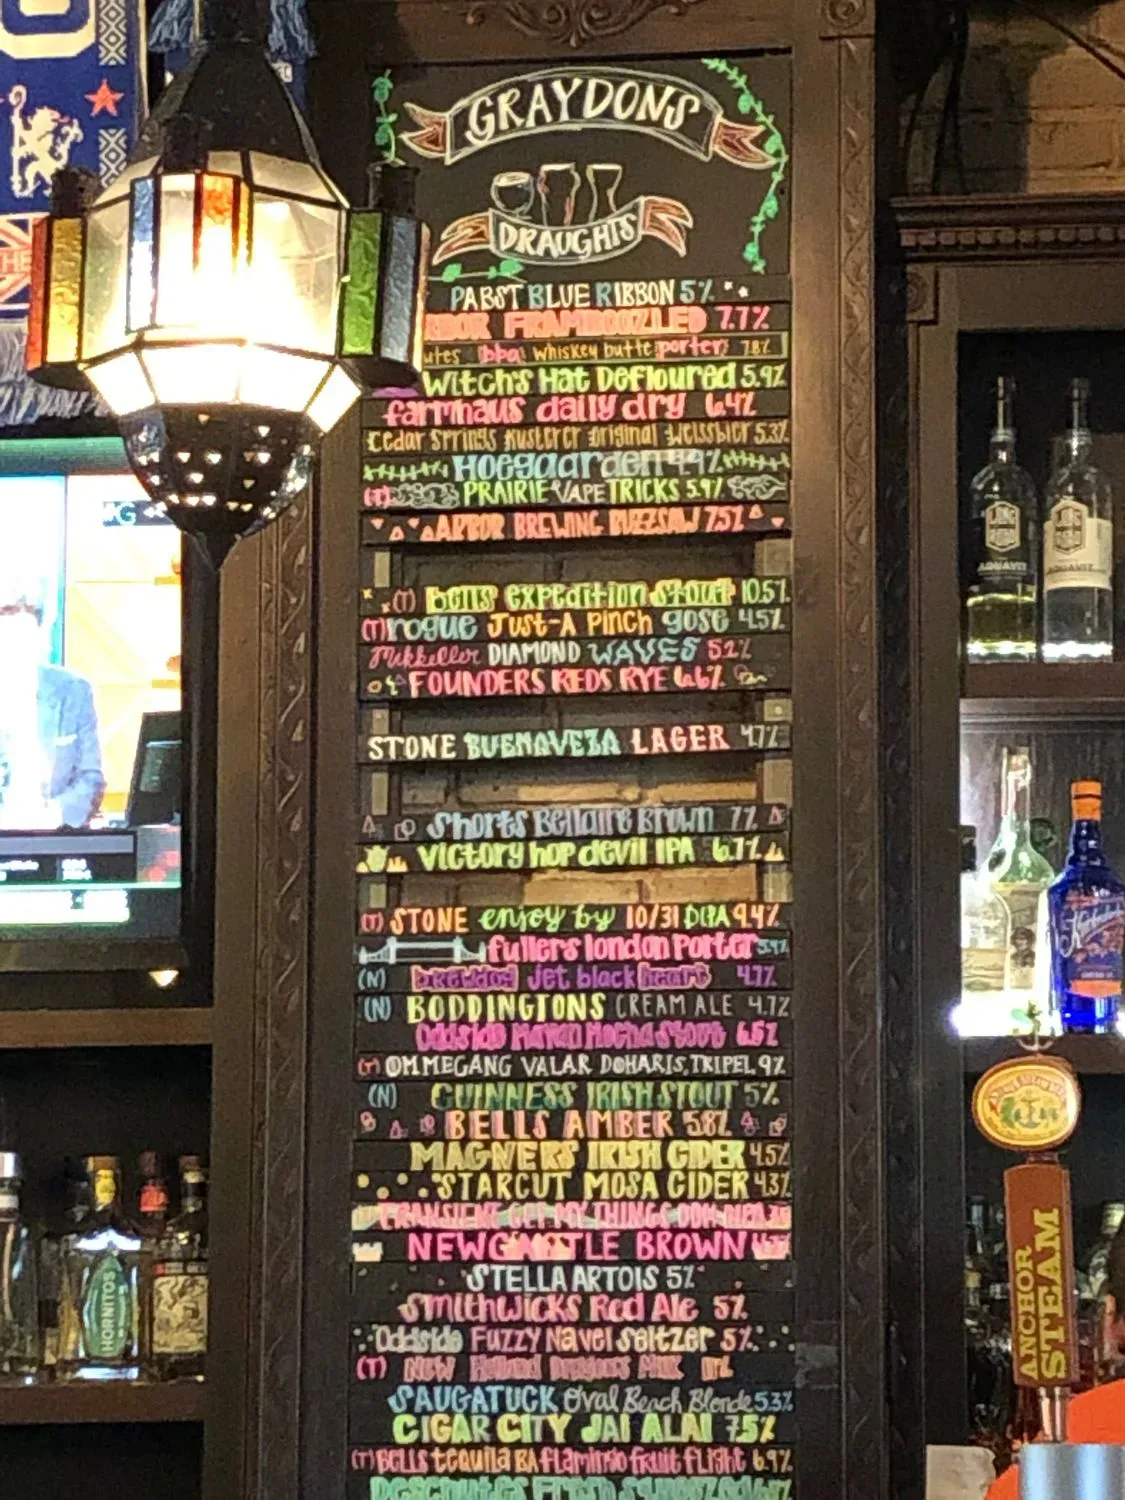 GRAYDONS
DRAUGHTS
PABST BLUE RIBBON 5%
FRAMBOOZLED 7.7%
utes bba whiskey butte porter 7.8%
Witch's Hat Defloured 5.9%
farmhaus daily dry 6.4%
Cedar Springs Kusterer Original Weissbier 5.3%
Hoegaarden 4.9%
(T) PRAIRIE VAPE TRICKS 5.9%
ARBOR BREWING BUZZSAW 7.5%
(T) Bells expedition stout 10.5%
(T) rogue Just-A Pinch gose 4.5%
Mikkeller DIAMOND WAVES 5.2%
FOUNDERS REDS RYE 6.6%
STONE BUENAVEZA LAGER 4.7%
Shorts Bellaire Brown 7%
victory hop devil IPA 6.7%
(T) STONE enjoy by 10/31 DIPA 9.4%
fullers london Porter 5.4%
(N) brewdog jet black heart 4.7%
(N) BODDINGTONS CREAM ALE 4.7%
Oddside Mayan Mocha Stout 6.5%
(T) OMMEGANG VALAR DOHARIS, TRIPEL 9%
(N) GUINNESS IRISH STOUT 5%
BELLS AMBER 5.8%
MAGNERS IRISH CIDER 4.5%
STARCUT MOSA CIDER 4.3%
TRANSIENT GET MY THINGS
NEWCASTLE BROWN
STELLA ARTOIS 5%
Smithwicks Red Ale 5%
Oddside Fuzzy Navel seltzer 5%
(T) New Holland Dragons Milk 11%
SAUGATUCK Oval Beach Blonde 5.3%
CIGAR CITY JAI ALAI 7.5%
(T) BELLS tequila BA flamingo fruit flight 6.9%
DESCHUTES FRESH
HORNITOS
AQUAVIT
AQUAVIT
ANCHOR
STEAM